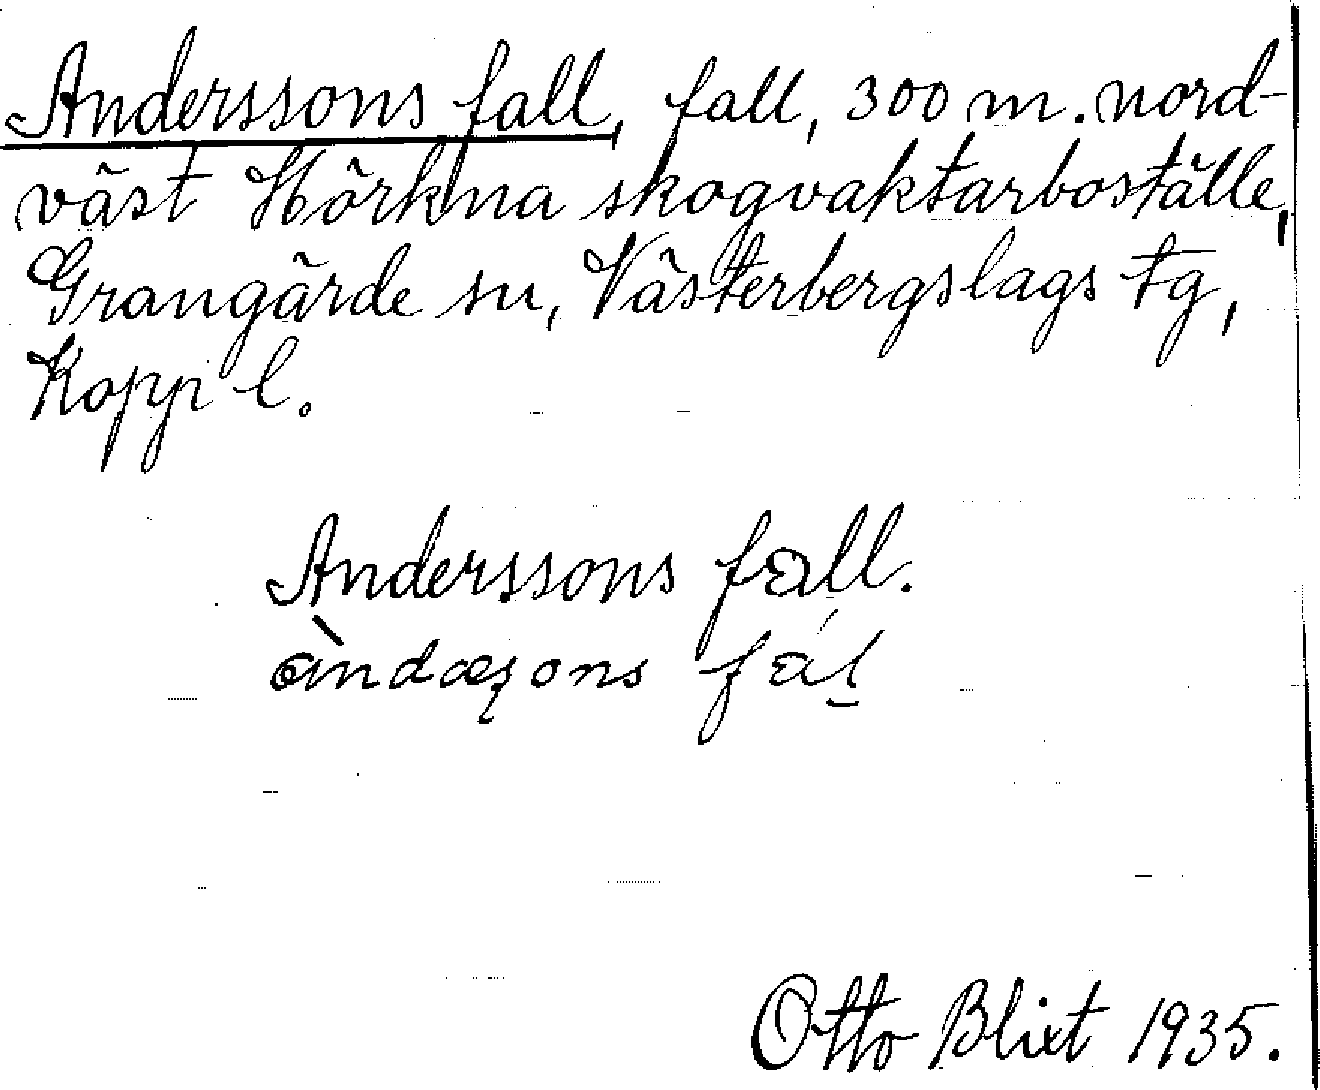 Anderssons fall, fall, 300 m. nord-
väst Hörkna skogvaktarboställe,
Grangärde sn, Västerbergslags tg,
Kopp l.
Anderssons fall.
àndæʂons fál
Otto Blixt 1935.